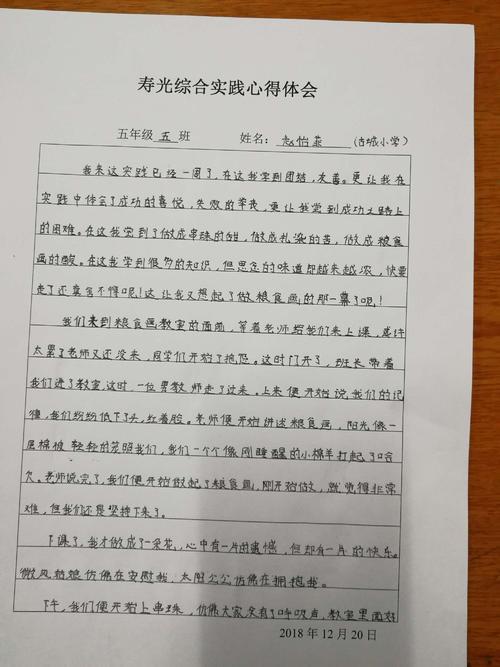 寿光综合实践心得体会
五年级 五 班 姓名： 赵怡燕 (古城小学)
我来这实践已经一周了，在这我学到团结，友善。更让我在
实践中体会了成功的喜悦，失败的辛丧，更让我觉到成功之路上
的困难。在这我觉到了做成串珠的甜，做成扎染的苦，做成粮食
画的酸。在这我学到很多的知识，但思念的味道却越来越浓，快要
走了还真舍不得呢！这让我又想起了做粮食画的那一幕了呢！
我们来到粮食画教室的面前，等着老师给我们来上课，或许
太累了老师又还没来，同学们开始了抱怨。这时门开了，班长带着
我们进了教室，这时一位男教师走了过来。上来便开始说我们的纪
律，我们纷纷低下了头，红着脸。老师便开始讲述粮食画，阳光像一
层棉被轻轻的笼照我们，我们一个个像刚睡醒的小棉羊打起了哈
欠。老师说完了，我们便开始做起了粮食画，刚开始做，就觉得非常
难，但我们还是坚持下来了。
下课了，我才做成了一朵花，心中有一片的遗憾，但却有一片的快乐。
微风姑娘仿佛在安慰我，太阳公公仿佛在拥抱我。
下午，我们便开始上串珠，仿佛大家没有了呼吸声，教室里面好
2018 年 12 月 20 日